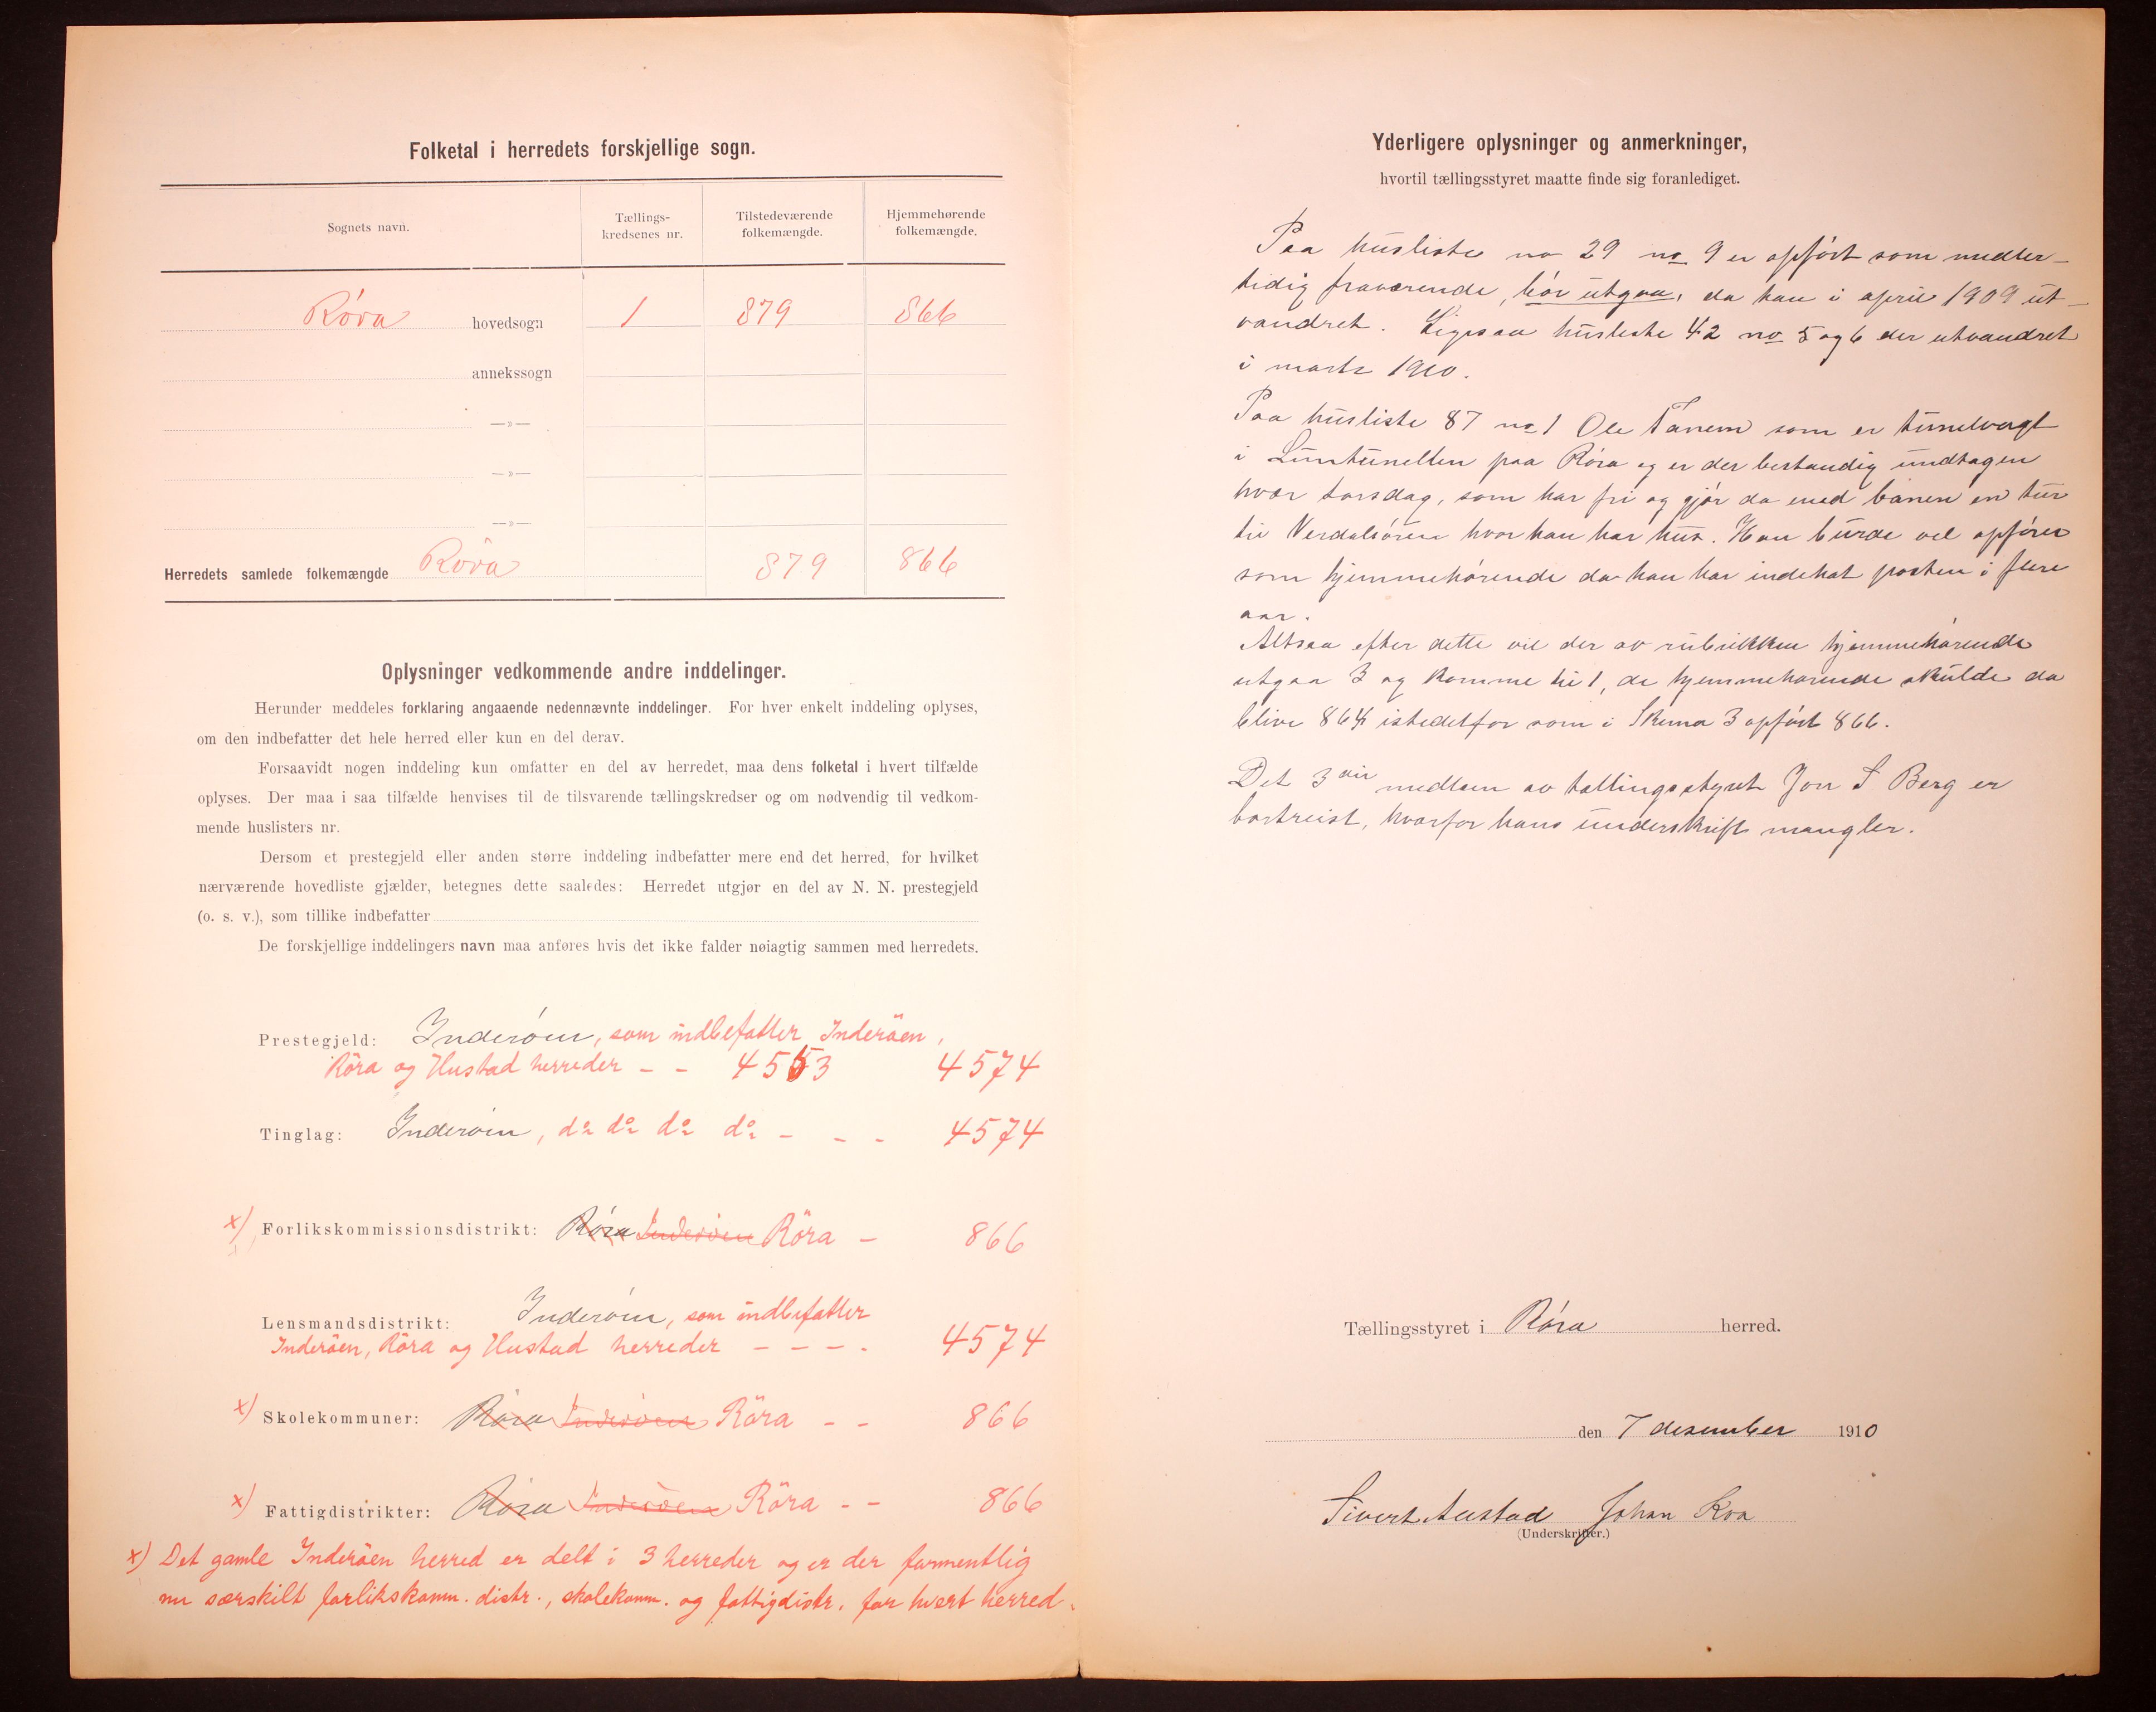 Folketal i herredets forskjellige sogn.
Sognets navn.
Tællings-
kredsenes nr.
Tilstedeværende
folkemængde.
Hjemmehørende
folkemængde.
Røra hovedsogn 1 879 866
annekssogn
—»—
—»—
—»—
Herredets samlede folkemængde Røra 879 866
Oplysninger vedkommende andre inddelinger.
Herunder meddeles forklaring angaaende nedennævnte inddelinger. For hver enkelt inddeling oplyses,
om den indbefatter det hele herred eller kun en del derav.
Forsaavidt nogen inddeling kun omfatter en del av herredet, maa dens folketal i hvert tilfælde
oplyses. Der maa i saa tilfælde henvises til de tilsvarende tællingskredser og om nødvendig til vedkom-
mende huslisters nr.
Dersom et prestegjeld eller anden større inddeling indbefatter mere end det herred, for hvilket
nærværende hovedliste gjælder, betegnes dette saaledes: Herredet utgjør en del av N. N. prestegjeld
(o. s. v.), som tillike indbefatter
De forskjellige inddelingers navn maa anføres hvis det ikke falder nøiagtig sammen med herredets.
Prestegjeld: Inderøen, som indbefatter Inderöen,
Röra og Hustad herreder – – 4553 4574
Tinglag: Inderøen, do do do do – – – 4574
x) Forlikskommissionsdistrikt: Røra Inderöen Röra – 866
Lensmandsdistrikt: Inderøen, som indbefatter
Inderöen, Röra og Hustad herreder – – – . 4574
x) Skolekommuner: Røra Inderöen Röra – – 866
x) Fattigdistrikter: Røra Inderöen Röra – – 866
x) Det gamle Inderöen herred er delt i 3 herreder og er der formentlig
nu særskilt forlikskomm. distr., skolekomm. og fattigdistr. for hvert herred.
Yderligere oplysninger og anmerkninger,
hvortil tællingsstyret maatte finde sig foranlediget.
Paa husliste no 29 no 9 er opført som midler-
tidig fraværende, bør utgaa, da han i april 1909 ut-
vandret. Ligesaa husliste 42 no 5 og 6 der utvandret
i marts 1910.
Paa husliste 87 no 1 Ole Tanem som er tunelvagt
i Luntunellen paa Røra og er der bestandig undtagen
hver torsdag, som har fri og gjør da med banen en tur
til Verdalsøren hvor han har hus. Han burde vel opføres
som hjemmehørende da han har indehat posten i flere
aar.
Altsaa efter dette vil der av rubrikken hjemmehørende
utgaa 3 og komme til 1, de hjemmehørende skulde da
blive 864 istedetfor som i Skema 3 opført 866.
Det 3die medlem av tællingsstyret Jon S Berg er
bortreist, hvorfor hans underskrift mangler.
Tællingsstyret i Røra herred.
den 7 desember 1910
Sivert Austad Johan Kva
(Underskrifter.)